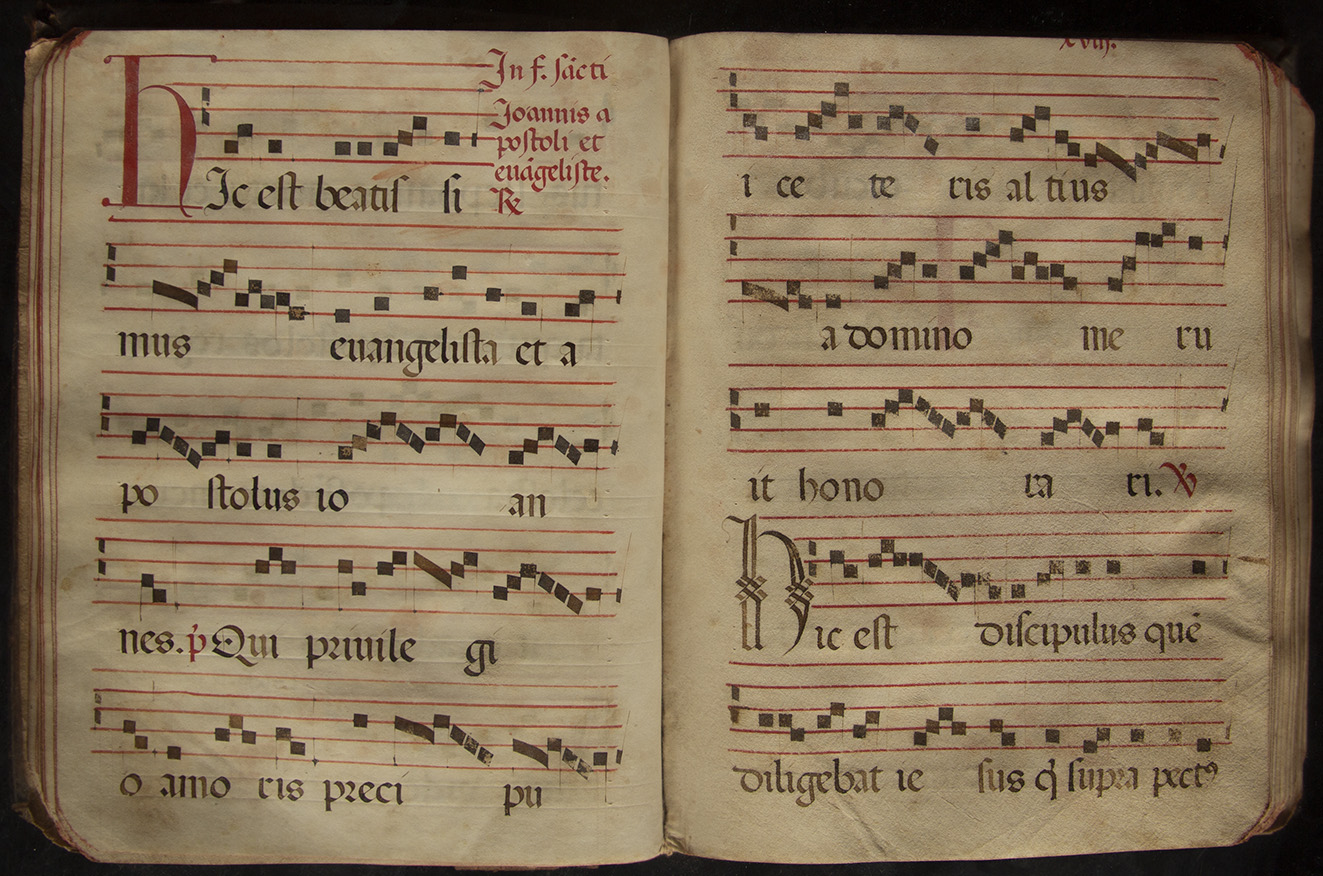 In f. sācti
Joannis a
postoli et
euāgeliste.
HIc est beatis si ℟
mus euangelista et a
po stolus io an
nes. p̄ Qui priuile gi
o amo ris preci pu
xviij.
i ce te ris al tius
a domino me ru
it hono ra ri. ℣
Hic est discipulus quē
diligebat ie sus q̇ supra pectꝰ